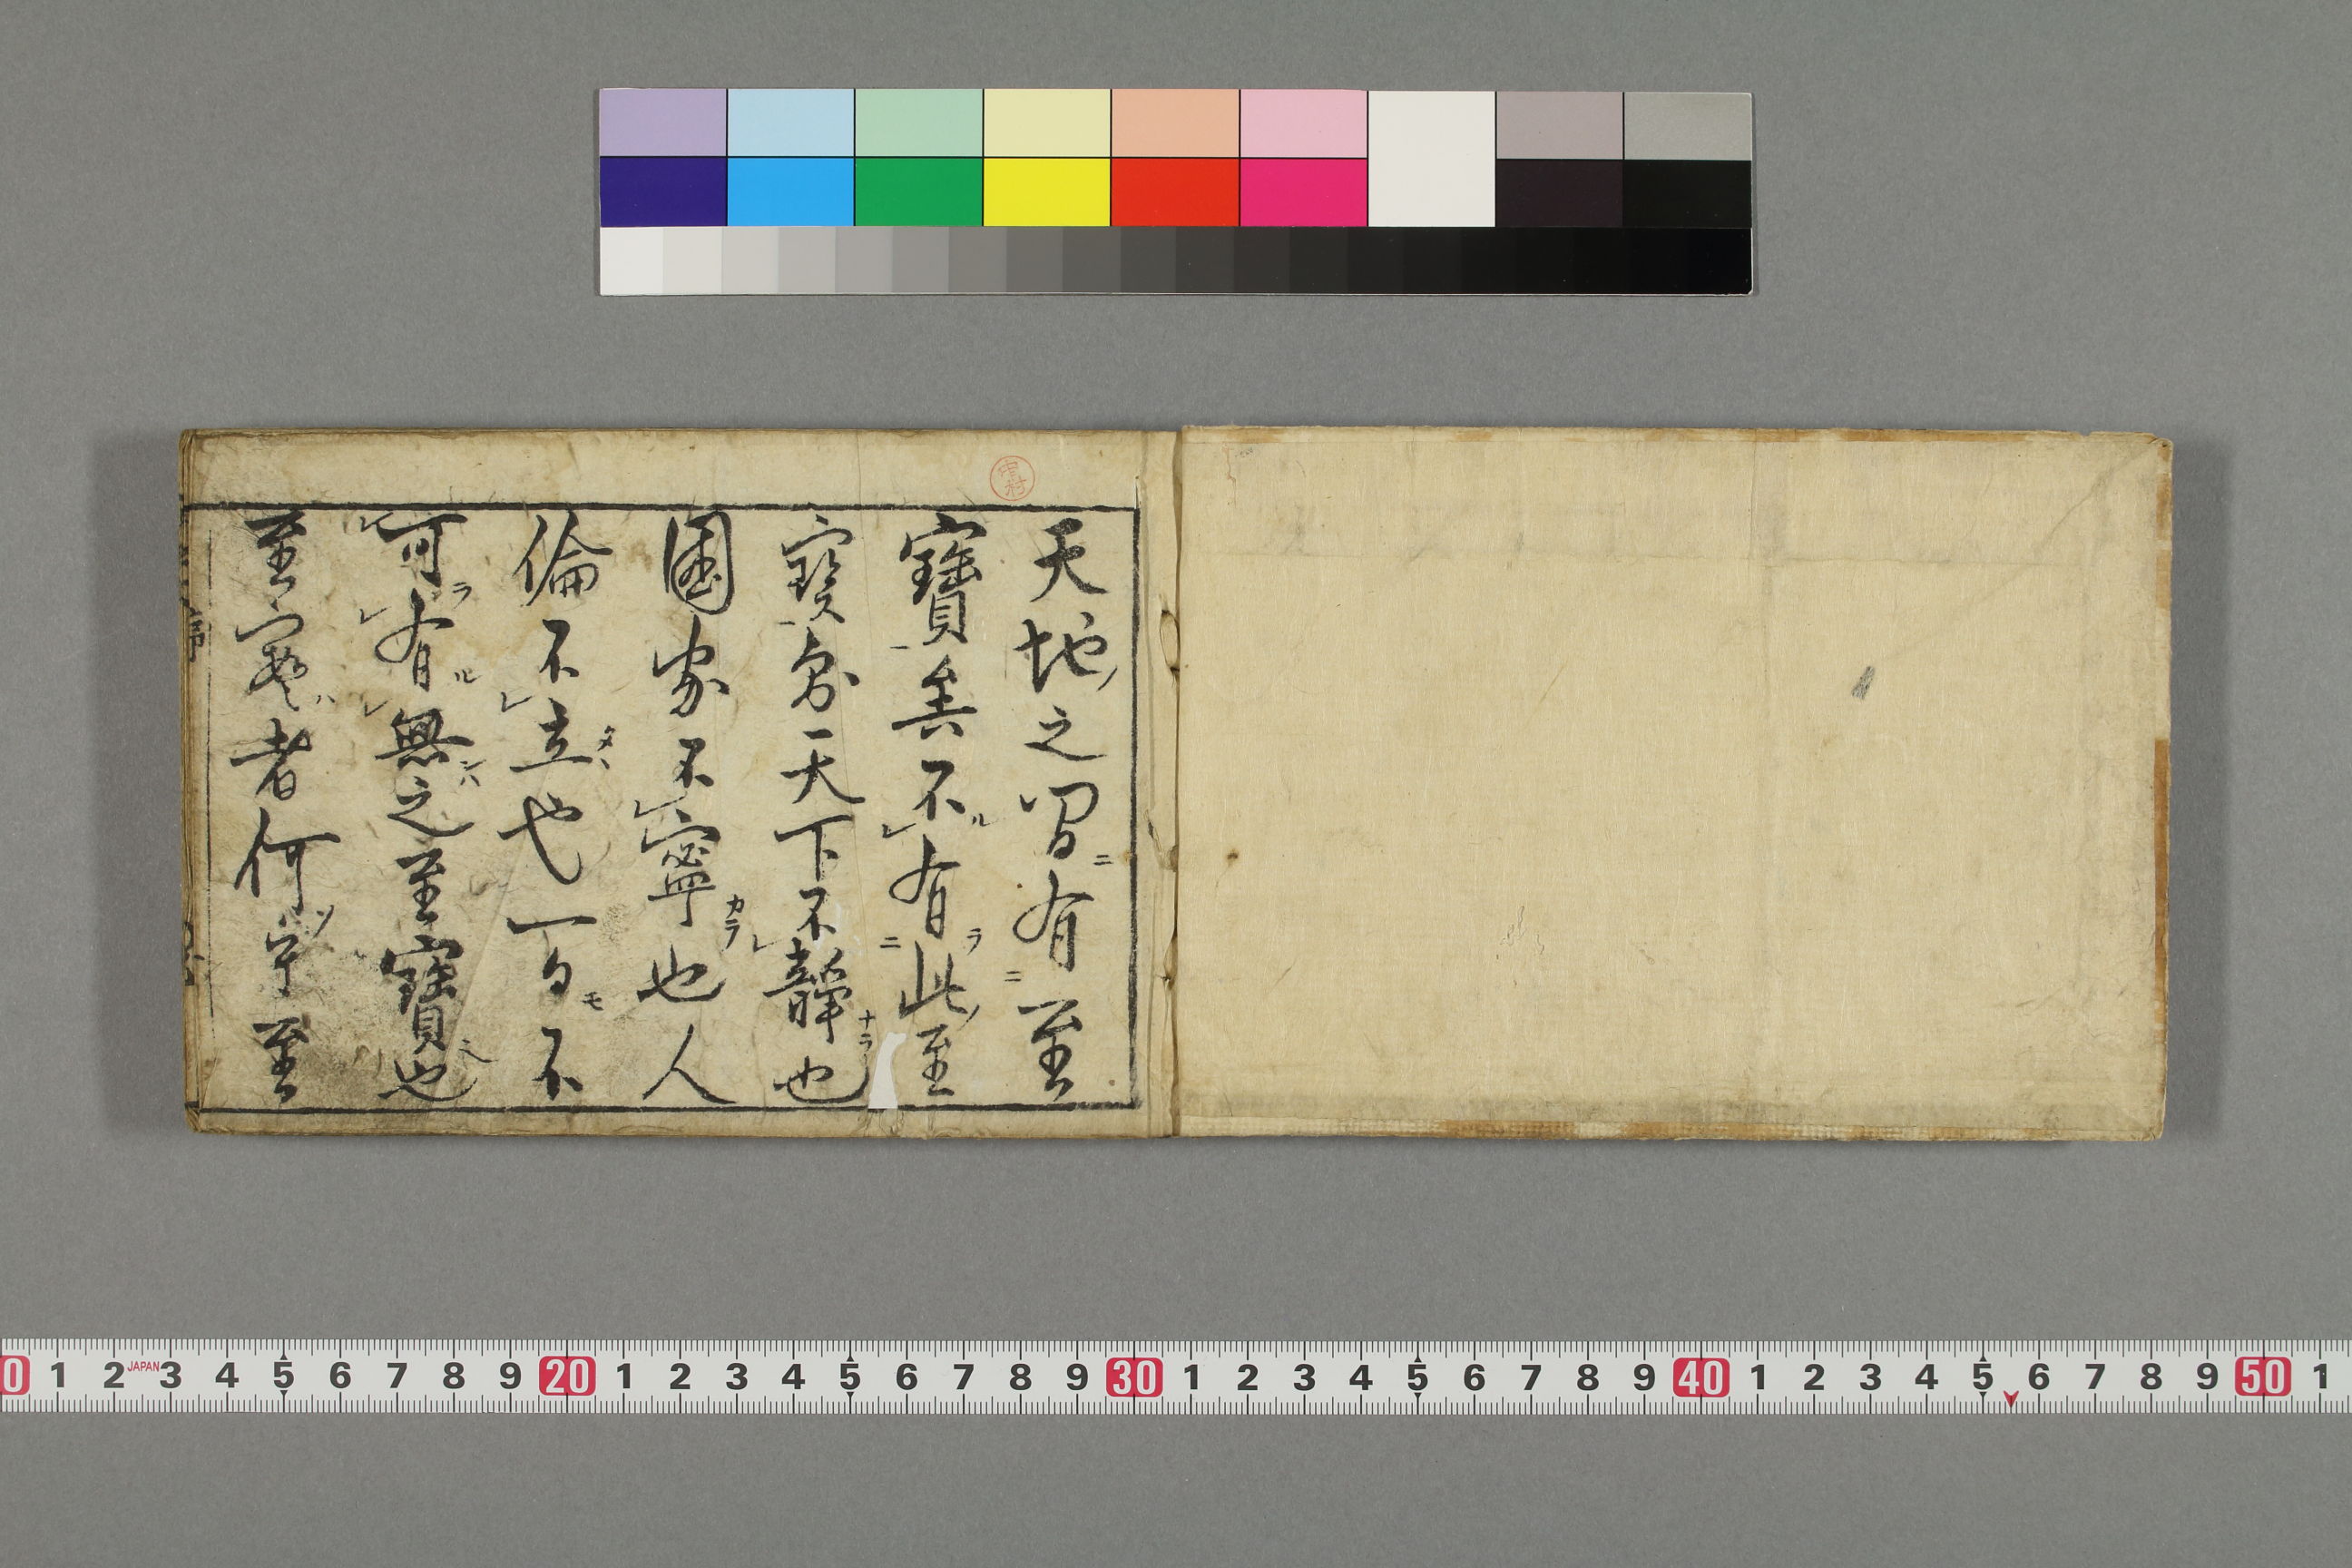 中村
天地之間有至
寶矣不有此至
寳焉天下不靜也
國家不寧也人
倫不立也一日不
可有無之至寶也
至寳者何乎至
序
0 1 2 JAPAN 3 4 5 6 7 8 9 20 1 2 3 4 5 6 7 8 9 30 1 2 3 4 5 6 7 8 9 40 1 2 3 4 5 6 7 8 9 50 1